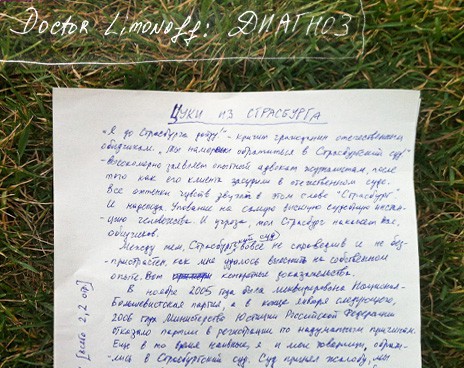 Doctor Limonoff: ДИАГНОЗ
ЦУКИ ИЗ СТРАСБУРГА
"Я до Страсбурга дойду!" - кричит гражданин отечественным
обидчикам. "Мы намерены обратиться в Страсбургский суд"
- высокомерно заявляет опытный адвокат журналистам, после
того как его клиента засудили в отечественном суде.
Все оттенки чувств звучат в этом слове "Страсбург"
И надежда. Упование на самую высшую судебную инстан-
цию человечества. И угроза, мол Страсбург накажет вас,
обидчиков.
Между тем, Страсбургский суд вовсе не справедлив и не бес-
-пристрастен, как мне удалось выяснить на собственном
опыте. Вот конкретные доказательства.
В ноябре 2005 года была ликвидирована Национал-
Большевистская партия, а в конце января следующего,
2006 года Министерство Юстиции Российской Федерации
отказало партии в регистрации по надуманным причинам.
Ещё в то время наивные, я и мои товарищи, обрати-
лись в Страсбургский суд. Суд принял жалобу, мы
[всего 2,2 стр]